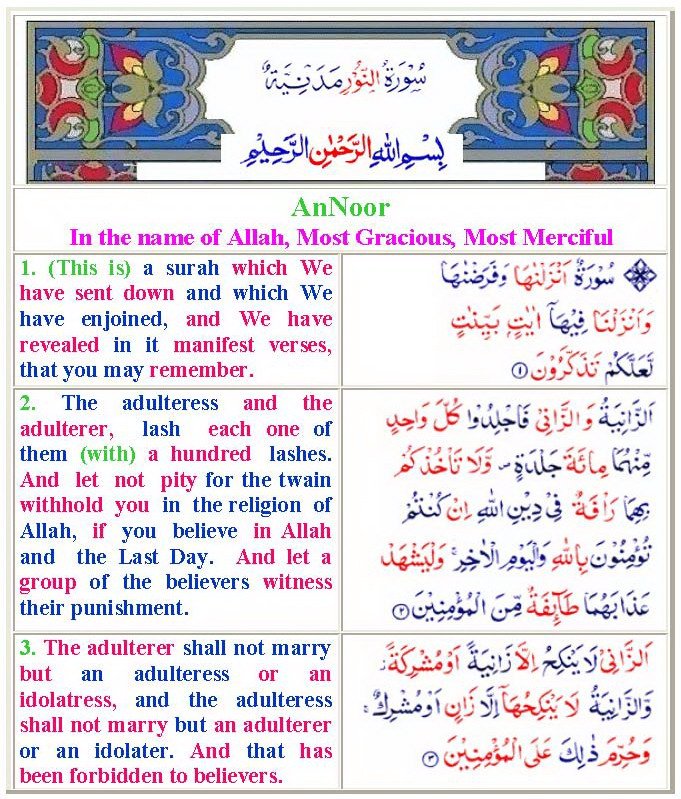 سُوْرَةُ النُّوْرِ مَدَنِيَّةٌ
بِسْمِ اللّٰهِ الرَّحْمٰنِ الرَّحِيْمِ
AnNoor
In the name of Allah, Most Gracious, Most Merciful
1. (This is) a surah which We
have sent down and which We
have enjoined, and We have
revealed in it manifest verses,
that you may remember.
سُوْرَةٌ اَنْزَلْنٰهَا وَفَرَضْنٰهَا
وَاَنْزَلْنَا فِيْهَاۤ اٰيٰتٍۭ بَيِّنٰتٍ
لَّعَلَّكُمْ تَذَكَّرُوْنَ ۝۱
2. The adulteress and the
adulterer, lash each one of
them (with) a hundred lashes.
And let not pity for the twain
withhold you in the religion of
Allah, if you believe in Allah
and the Last Day. And let a
group of the believers witness
their punishment.
اَلزَّانِيَةُ وَالزَّانِيْ فَاجْلِدُوْا كُلَّ وَاحِدٍ
مِّنْهُمَا مِائَةَ جَلْدَةٍ ۪ وَّلَا تَاْخُذْكُمْ
بِهِمَا رَاْفَةٌ فِيْ دِيْنِ اللّٰهِ اِنْ كُنْتُمْ
تُؤْمِنُوْنَ بِاللّٰهِ وَالْيَوْمِ الْاٰخِرِ ۚ وَلْيَشْهَدْ
عَذَابَهُمَا طَآئِفَةٌ مِّنَ الْمُؤْمِنِيْنَ ۝۲
3. The adulterer shall not marry
but an adulteress or an
idolatress, and the adulteress
shall not marry but an adulterer
or an idolater. And that has
been forbidden to believers.
اَلزَّانِيْ لَا يَنْكِحُ اِلَّا زَانِيَةً اَوْ مُشْرِكَةً ؗ
وَّالزَّانِيَةُ لَا يَنْكِحُهَاۤ اِلَّا زَانٍ اَوْ مُشْرِكٌ ۚ
وَحُرِّمَ ذٰلِكَ عَلَى الْمُؤْمِنِيْنَ ۝۳